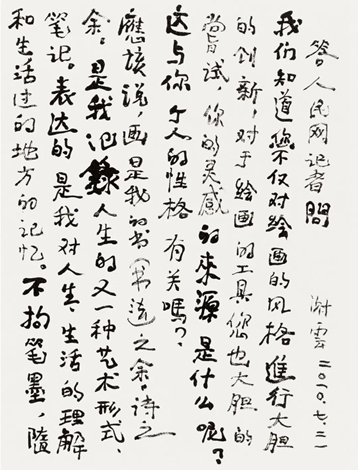 答人民网记者問 谢雲二〇一〇.七.二一
我们知道您不仅对绘画的风格進行大胆
的创新，对于绘画的工具您也大胆的
尝試，你的灵感的來源是什么呢？
这与你个人的性格有关嗎？
應該说，画是我的书（书法）之余，诗之
余，是我记錄人生的又一种艺术形式、
笔记。表达的是我对人生、生活的理解
和生活过的地方的记忆。不拘笔墨，隨